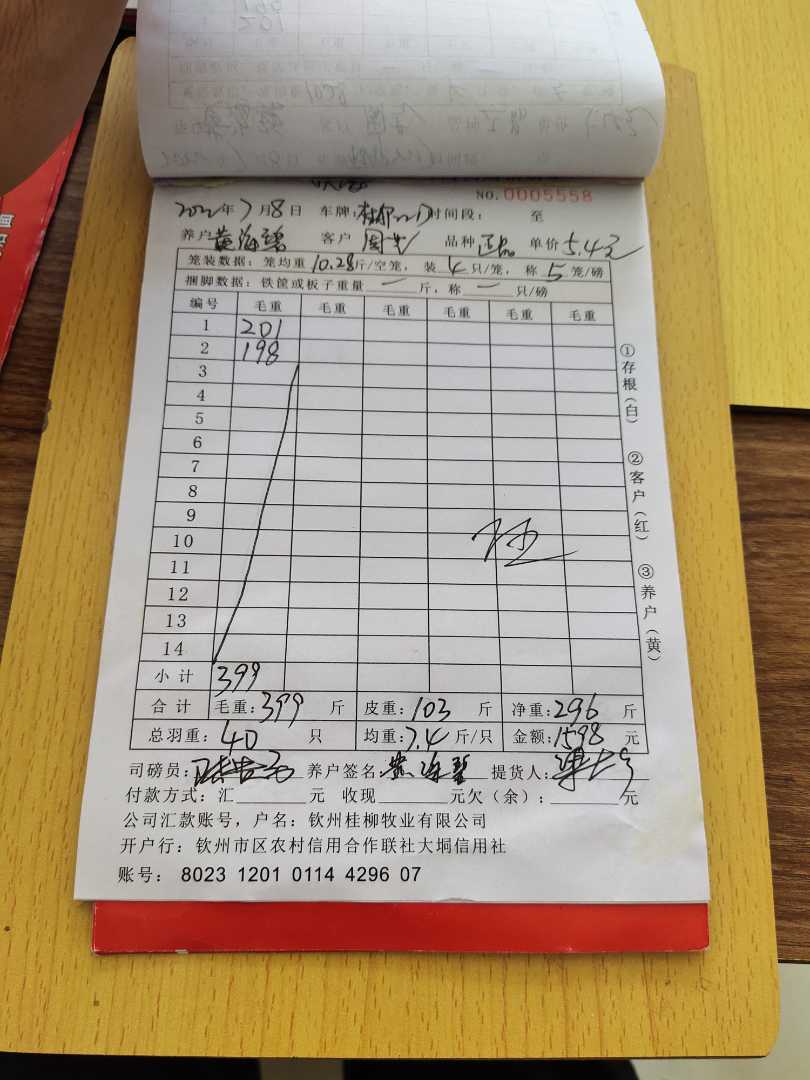 NO.0005558
2022年7月8日 车牌: 时间段: 至
养户黄海碧 客户 周 品种 正品 单价5.4元
笼装数据: 笼均重10.28斤/空笼, 装4只/笼, 称5笼/磅
捆脚数据: 铁筐或板子重量 一 斤, 称 一 只/磅
编号 毛重 毛重 毛重 毛重 毛重 毛重
1 201
2 198
3
4
5
6
7
8
9
10
11
12
13
14
小计 399
合计 毛重:399 斤 皮重: 103 斤 净重:296 斤
总羽重: 40 只 均重:7.4斤/只 金额:1598 元
司磅员: 养户签名:黄海碧 提货人:
付款方式: 汇 元 收现 元欠(余): 元
公司汇款账号, 户名: 钦州桂柳牧业有限公司
开户行: 钦州市区农村信用合作联社大垌信用社
账号: 8023 1201 0114 4296 07
①存根(白)
②客户(红)
③养户(黄)